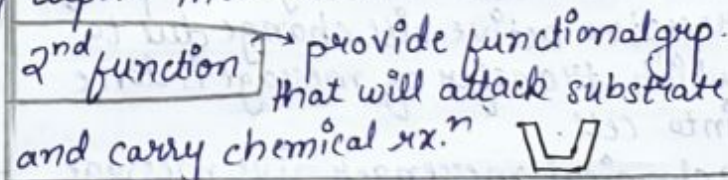 2nd function → provide functional grp.
that will attack substrate
and carry chemical rx.n